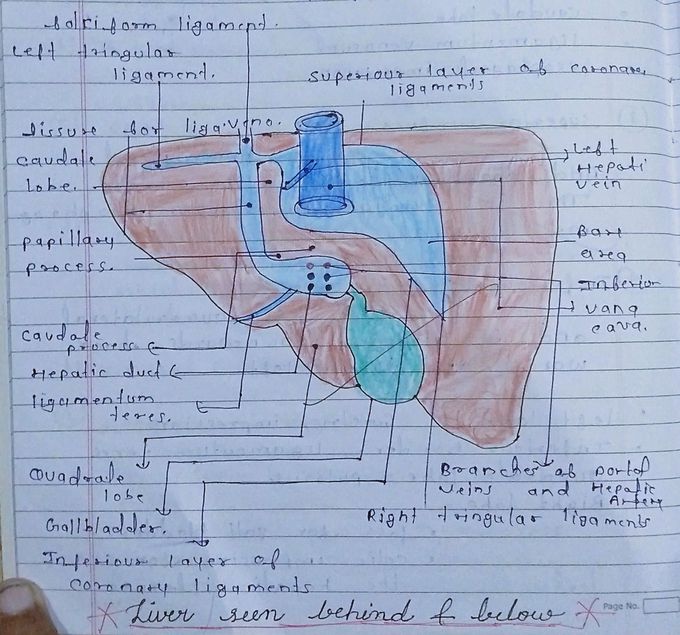 falciform ligament.
Left tringular
ligament.
superiour layer of coronary
ligaments
fissure for liga.veno.
Caudate
lobe.
Left
Hepati
vein
papillary
process.
Bare
area
Inferior
vana
cava.
Caudate
process
Hepatic duct
ligamentum
teres.
Quadrale
lobe
Gallbladder.
Branches of portof
veins and Hepatic
Artery
Right tringular ligaments
Inferiour layer of
coronary ligaments
Liver seen behind & below
Page No.